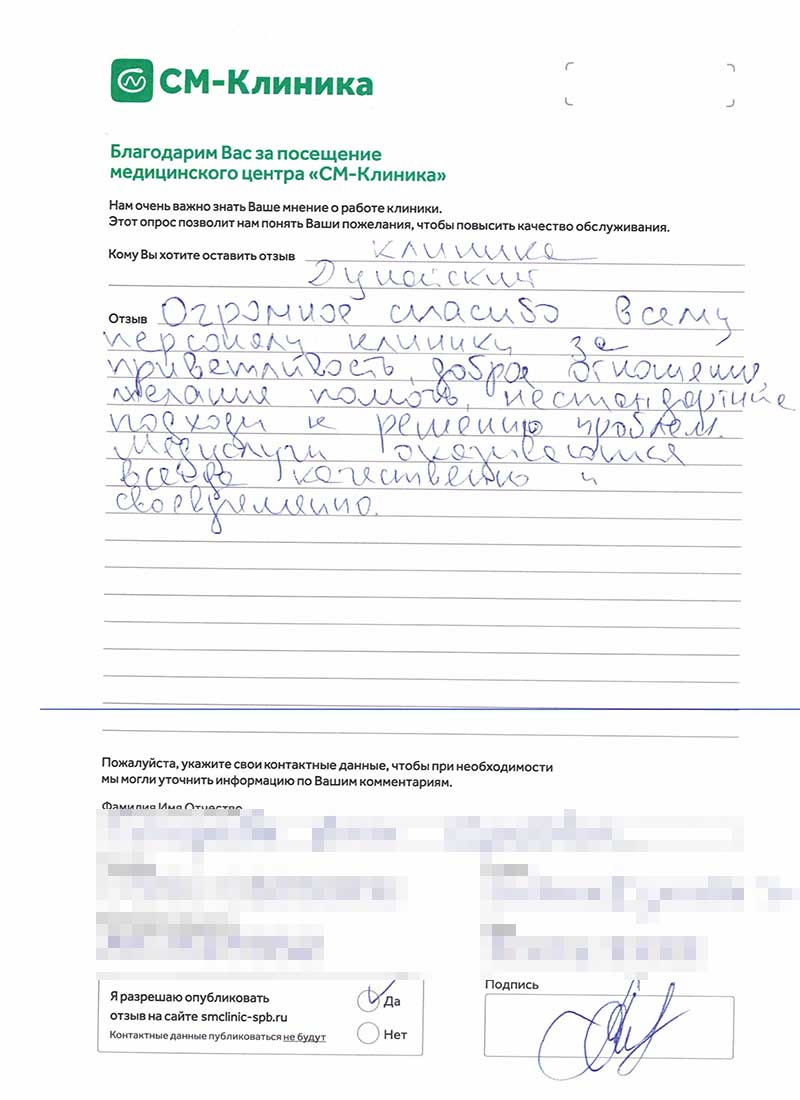 СМ-Клиника
Благодарим Вас за посещение
медицинского центра «СМ-Клиника»
Нам очень важно знать Ваше мнение о работе клиники.
Этот опрос позволит нам понять Ваши пожелания, чтобы повысить качество обслуживания.
Кому Вы хотите оставить отзыв клинике
Дунайский
Отзыв Огромное спасибо всему
персоналу клиники за
приветливость, доброе отношение,
желание помочь, нестандартные
подходы к решению проблем.
Медуслуги оказываются
всегда качественно и
своевременно.
Пожалуйста, укажите свои контактные данные, чтобы при необходимости
мы могли уточнить информацию по Вашим комментариям.
Фамилия Имя Отчество
Я разрешаю опубликовать
отзыв на сайте smclinic-spb.ru
Контактные данные публиковаться не будут
Да
Нет
Подпись